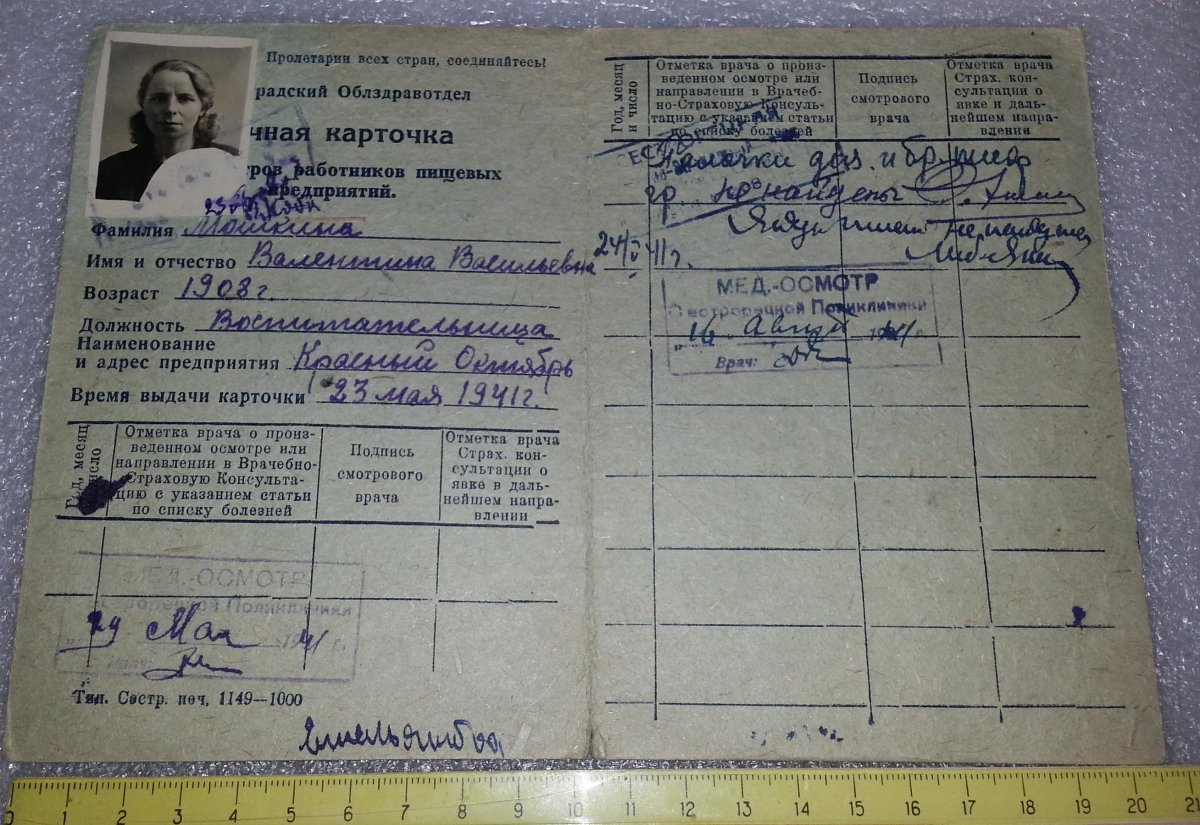 Пролетарии всех стран, соединяйтесь!
градский Облздравотдел
чная карточка
тров работников пищевых
предприятий.
Фамилия Мошкина
Имя и отчество Валентина Васильевна
Возраст 1908 г.
Должность Воспитательница
Наименование
и адрес предприятия Красный Октябрь
Время выдачи карточки 23 мая 1941 г.
Год, месяц
и число
Отметка врача о произ-
веденном осмотре или
направлении в Врачебно-
Страховую Консульта-
цию с указанием статьи
по списку болезней
Подпись
смотрового
врача
Отметка врача
Страх. кон-
сультации о
явке в даль-
нейшем напра-
влении
МЕД.-ОСМОТР
Поликлиники
29 Мая 1941 г.
Врач:
Тип. Сестр. печ. 1149—1000
Год, месяц
и число
Отметка врача о произ-
веденном осмотре или
направлении в Врачеб-
но-Страховую Консуль-
тацию с указанием статьи
по списку болезней
Подпись
смотрового
врача
Отметка врача
Страх. кон-
сультации о
явке и даль-
нейшем напра-
влении
Палочки диз. и брюшн
гр. не найдены
24/V 41 г.
МЕД.-ОСМОТР
Сестрорецкой Поликлиники
16 Август 1941 г.
Врач:
0 1 2 3 4 5 6 7 8 9 10 11 12 13 14 15 16 17 18 19 20 21